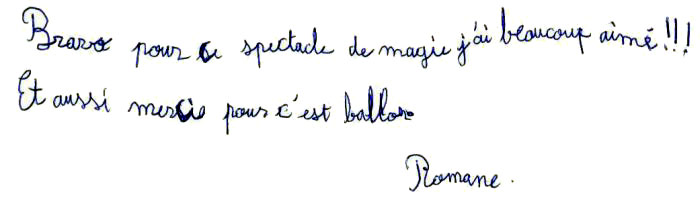 Bravo pour ce spectacle de magie j'ai beaucoup aimé !!!
Et aussi mercie pour c'est ballon
Romane.